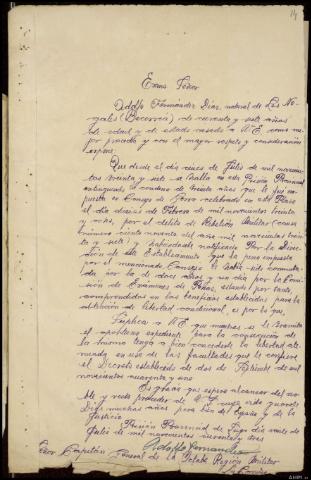 14
Exmo Señor
Adolfo Fernández Diaz, natural de Las No-
gales (Becerreá) de cuarenta y siete años
de edad y de estado casado a V.E. como me-
jor proceda y con el mayor respeto y consideración
expone:
Que desde el día de Julio de mil novecien-
tos treinta y siete se halla en esta Prisión Provincial
extinguiendo la condena de treinta años que le fué im-
puesta en Consejo de Guerra celebrado en esta Plaza
el día de Febrero de mil novecientos treinta
y por el delito de Rebelión Militar (causa
número ciento noventa del año mil novecientos trein-
ta y siete) y habiéndosele notificado Por la Direc-
ción de este Establecimiento que la pena impuesta
por el mencionado Consejo le había sido conmuta-
da por la de doce años y un día por la Comi-
sión de Examenes de Penas, estando por tanto,
comprendido en los beneficios establecidos para la
obtención de libertad condicional, es por lo que,
Suplica a V.E. que mientras se le tramita
el oportuno expediente para la concesión de
la misma tenga a bien concederle la libertad ate-
nuada en uso de las facultades que le confiere
el Decreto establecido de dos de Septiembre de mil
novecientos cuarenta y uno.
Es gracia que espera alcanzar del no-
ble y recto proceder de V.E. cuya vida guarde
Dios muchos años para bien del España y de la
Justicia
Prisión Provincial de Lugo día de
Julio de mil novecientos cuarenta y tres
Adolfo Fernandez
Señor Capitán General de la Octava Región Militar